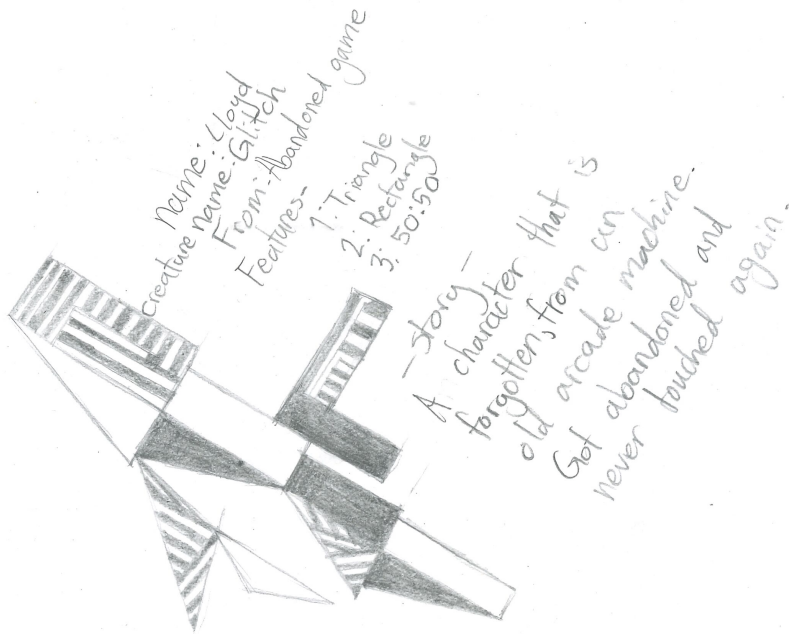 Name: Lloyd
Creature name: Glitch
From- Abandoned game
Features-
1: Triangle
2: Rectangle
3: 50:50
- Story -
A character that is
forgotten, from an
old arcade machine.
Got abandoned and
never touched again.